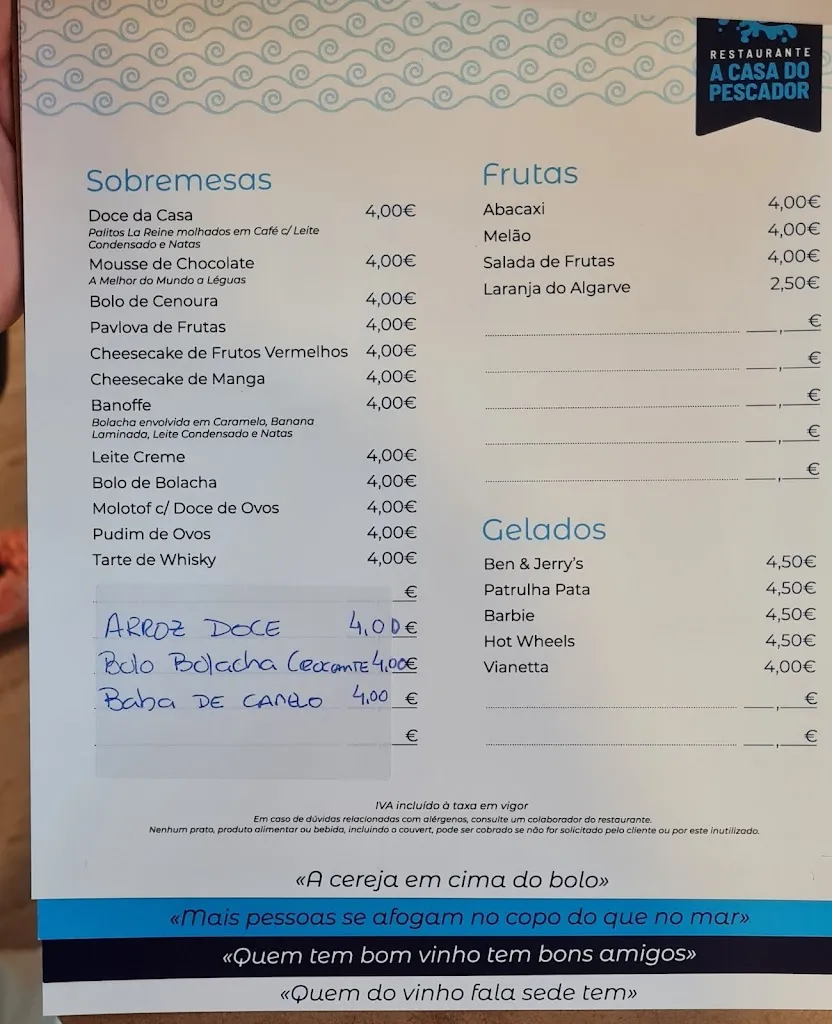 RESTAURANTE
A CASA DO
PESCADOR
Sobremesas
Doce da Casa 4,00€
Palitos La Reine molhados em Café c/ Leite
Condensado e Natas
Mousse de Chocolate 4,00€
A Melhor do Mundo a Léguas
Bolo de Cenoura 4,00€
Pavlova de Frutas 4,00€
Cheesecake de Frutos Vermelhos 4,00€
Cheesecake de Manga 4,00€
Banoffe 4,00€
Bolacha envolvida em Caramelo, Banana
Laminada, Leite Condensado e Natas
Leite Creme 4,00€
Bolo de Bolacha 4,00€
Molotof c/ Doce de Ovos 4,00€
Pudim de Ovos 4,00€
Tarte de Whisky 4,00€
€
ARROZ DOCE 4,00€
Bolo Bolacha Crocante 4,00€
Baba DE CAMELO 4,00 €
€
Frutas
Abacaxi 4,00€
Melão 4,00€
Salada de Frutas 4,00€
Laranja do Algarve 2,50€
___,___€
___,___€
___,___€
___,___€
___,___€
Gelados
Ben & Jerry's 4,50€
Patrulha Pata 4,50€
Barbie 4,50€
Hot Wheels 4,50€
Vianetta 4,00€
___,___€
___,___€
IVA incluído à taxa em vigor
Em caso de dúvidas relacionadas com alérgenos, consulte um colaborador do restaurante.
Nenhum prato, produto alimentar ou bebida, incluindo o couvert, pode ser cobrado se não for solicitado pelo cliente ou por este inutilizado.
«A cereja em cima do bolo»
«Mais pessoas se afogam no copo do que no mar»
«Quem tem bom vinho tem bons amigos»
«Quem do vinho fala sede tem»